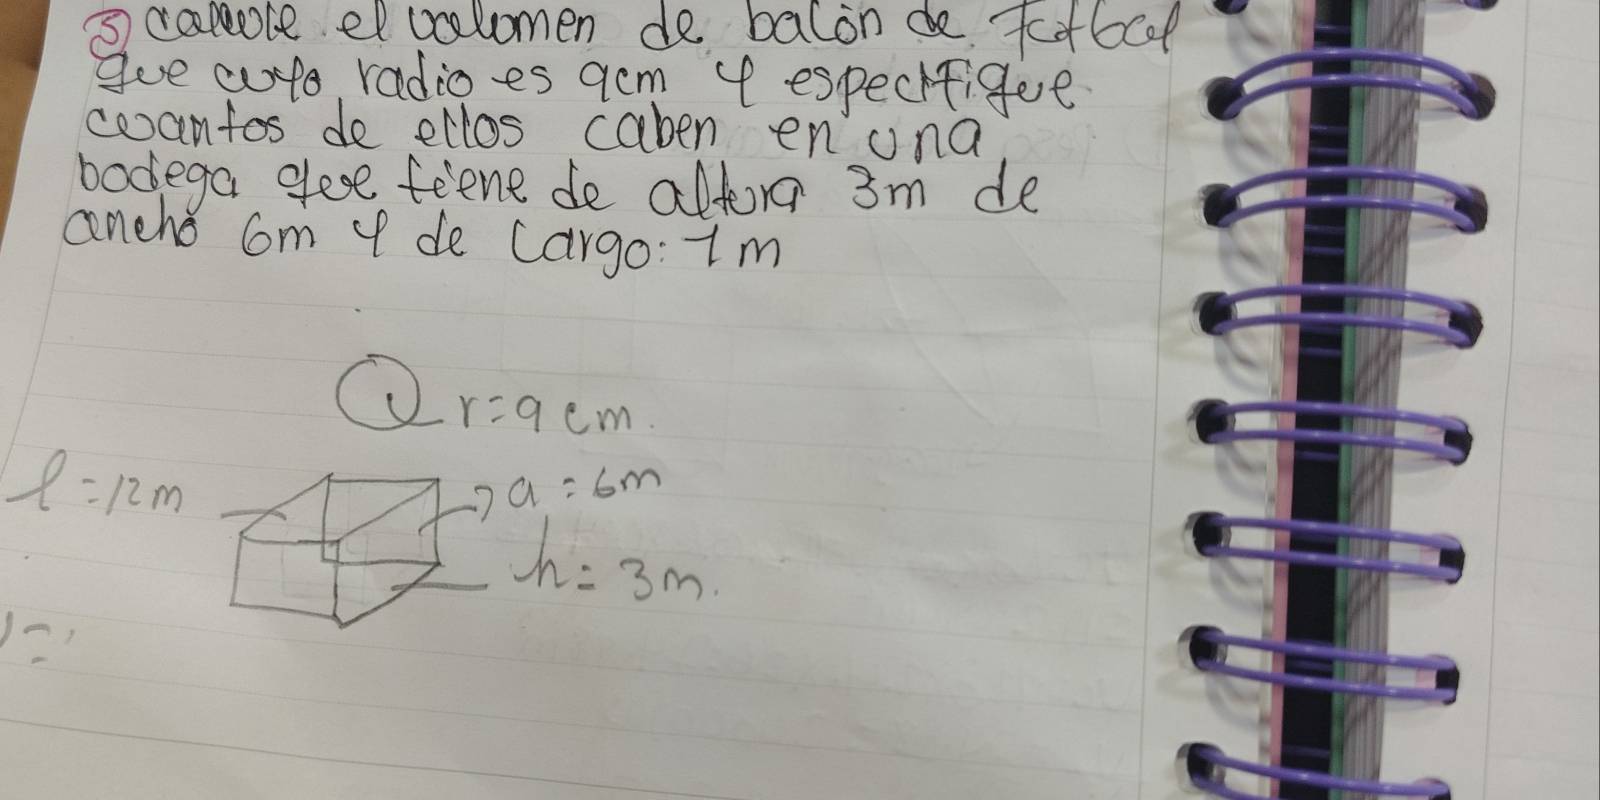 5) calcule el volumen de balón de futbol
que cuyo radio es 9cm y especifique
cuantos de ellos caben en una
bodega que tiene de altura 3m de
ancho 6m y de largo: 1m
r=9cm.
l=12m
a=6m
h=3m.